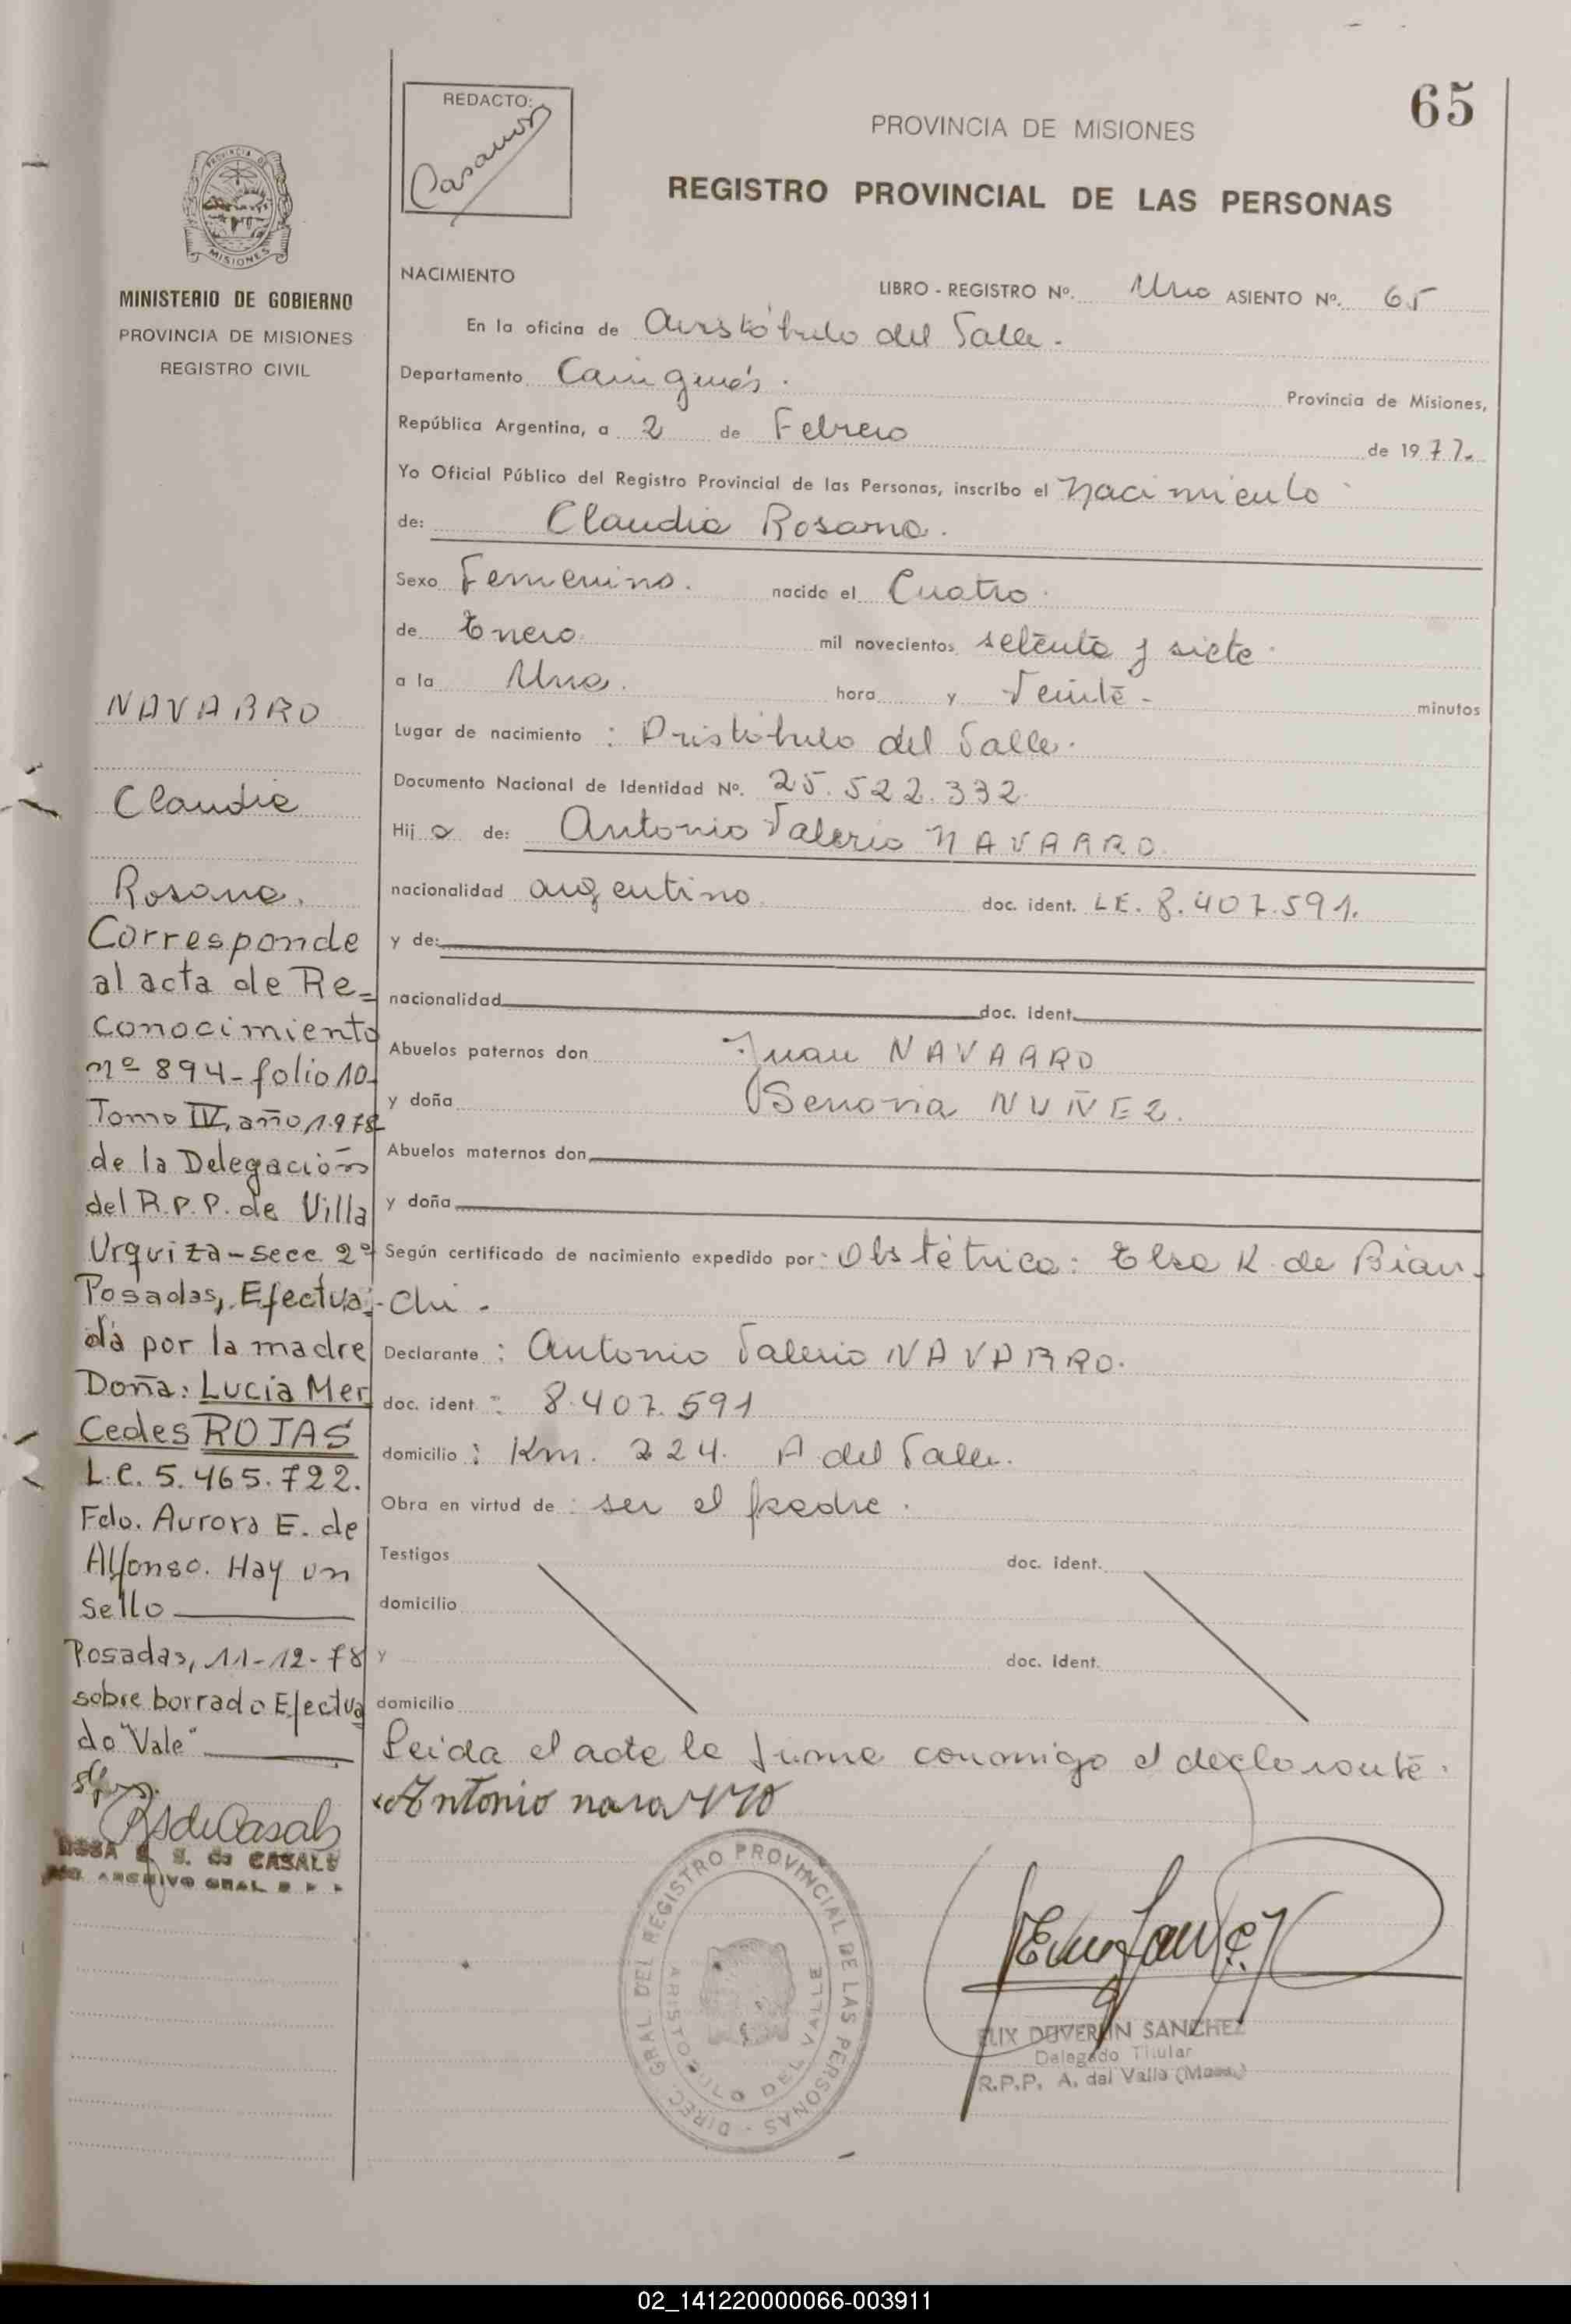 65
REDACTO:
PROVINCIA DE MISIONES
REGISTRO PROVINCIAL DE LAS PERSONAS
PROVINCIA DE
MISIONES
MINISTERIO DE GOBIERNO
PROVINCIA DE MISIONES
REGISTRO CIVIL
NAVARRO
Claudia
Rosana.
Corresponde
al acta de Re=
conocimiento
nº 894-folio 10-
Tomo IV, año 1978
de la Delegación
del R.P.P. de Villa
Urquiza-secc 2ª
Posadas, Efectua-
da por la madre
Doña: Lucia Mer
cedes ROJAS
L.C. 5.465.722.
Fdo. Aurora E. de
Alfonso. Hay un
sello
Posadas, 11-12-78
sobre borrado Efectua
do "Vale"
S. de CASALS
ARCHIVO GRAL R P P
NACIMIENTO
LIBRO - REGISTRO Nº. Uno ASIENTO Nº. 65
En la oficina de Aristóbulo del Valle.
Departamento Cainguás. Provincia de Misiones,
República Argentina, a 2 de Febrero de 1977.
Yo Oficial Público del Registro Provincial de las Personas, inscribo el Nacimiento
de: Claudia Rosana.
Sexo Femenino. nacido el Cuatro
de Enero mil novecientos setenta y siete
a la Una. hora y Veinte minutos
Lugar de nacimiento : Aristóbulo del Valle.
Documento Nacional de Identidad Nº. 25.522.332
Hij a de: Antonio Valerio NAVARRO
nacionalidad argentino doc. ident. LE. 8.407.591.
y de:
nacionalidad doc. ident.
Abuelos paternos don Juan NAVARRO
y doña Senovia NUÑEZ.
Abuelos maternos don
y doña
Según certificado de nacimiento expedido por: Obstétrica: Elsa K de Bian-
chi.
Declarante : Antonio Valerio NAVARRO.
doc. ident : 8.407.591
domicilio : Km. 224. A del Valle.
Obra en virtud de : ser el padre.
Testigos doc. ident.
domicilio
y doc. ident.
domicilio
Leida el acta la firma conmigo el declarante.
Antonio navarro
DIREC. GRAL. DEL REGISTRO PROVINCIAL DE LAS PERSONAS
ARISTOBULO DEL VALLE
SANCHEZ
Delegado Titular
R.P.P. A. del Valle (Mnes.)
02_141220000066-003911